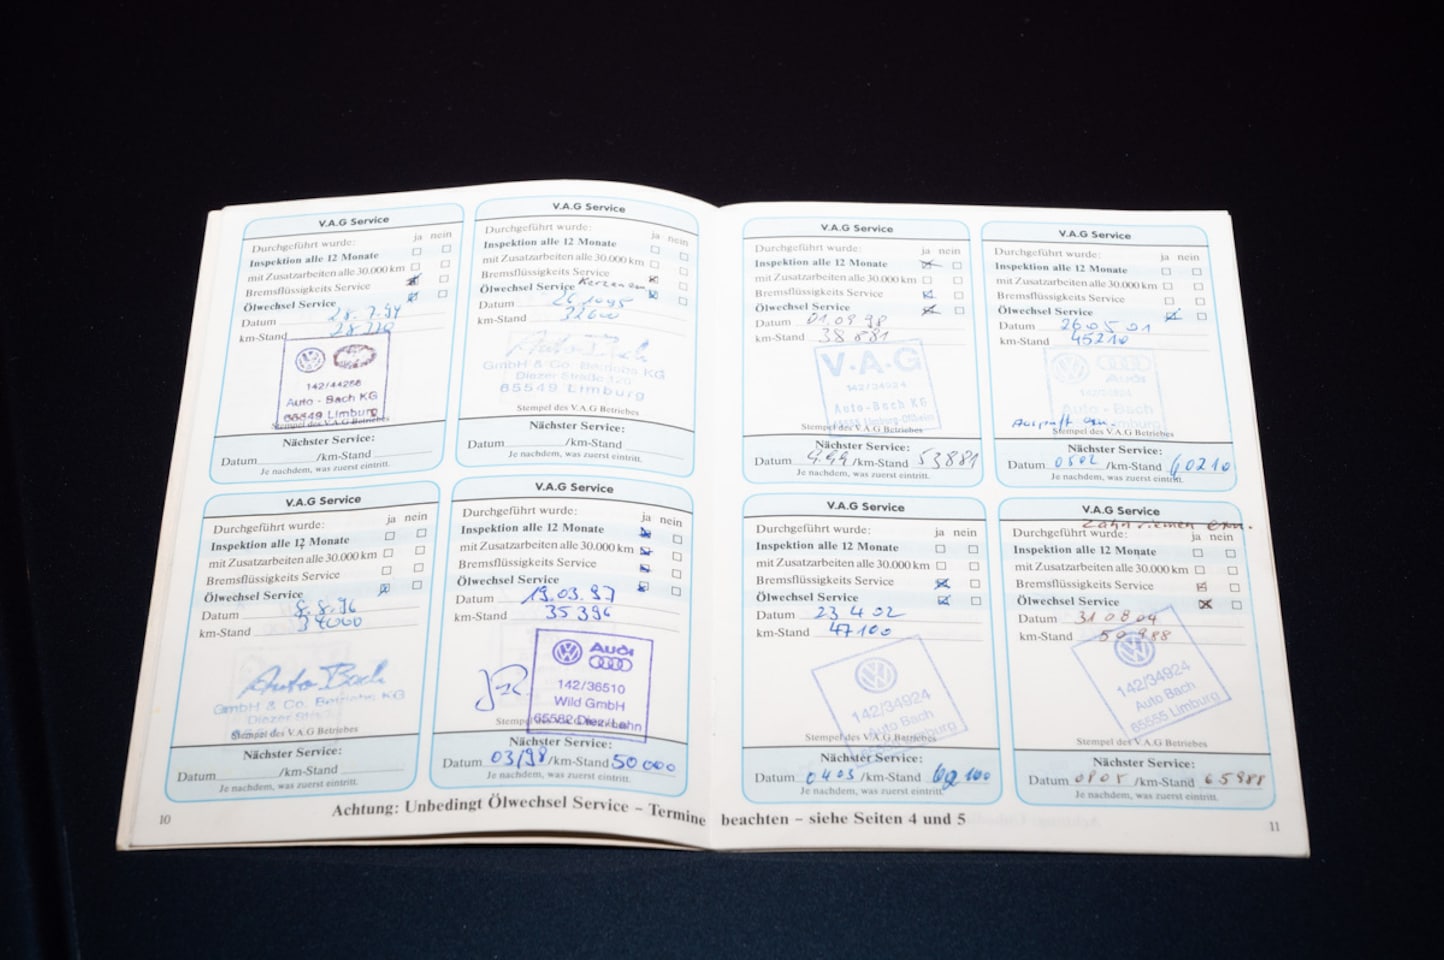 V.A.G Service
Durchgeführt wurde: ja nein
Inspektion alle 12 Monate
mit Zusatzarbeiten alle 30.000 km
Bremsflüssigkeits Service
Ölwechsel Service
Datum 28. 7. 94
km-Stand 28220
142/44286
Auto - Bach KG
65549 Limburg
Stempel des V.A.G Betriebes
Nächster Service:
Datum /km-Stand
Je nachdem, was zuerst eintritt.
V.A.G Service
Durchgeführt wurde: ja nein
Inspektion alle 12 Monate
mit Zusatzarbeiten alle 30.000 km
Bremsflüssigkeits Service
Ölwechsel Service Kerzen
Datum 26.10.95
km-Stand 32600
Auto Bach
GmbH & Co. Betriebs KG
Diezer Straße 120
65549 Limburg
Stempel des V.A.G Betriebes
Nächster Service:
Datum /km-Stand
Je nachdem, was zuerst eintritt.
V.A.G Service
Durchgeführt wurde: ja nein
Inspektion alle 12 Monate
mit Zusatzarbeiten alle 30.000 km
Bremsflüssigkeits Service
Ölwechsel Service
Datum 8.8.96
km-Stand 34000
Auto Bach
GmbH & Co. Betriebs KG
Diezer
Stempel des V.A.G Betriebes
Nächster Service:
Datum /km-Stand
Je nachdem, was zuerst eintritt.
V.A.G Service
Durchgeführt wurde: ja nein
Inspektion alle 12 Monate
mit Zusatzarbeiten alle 30.000 km
Bremsflüssigkeits Service
Ölwechsel Service
Datum 19.03.97
km-Stand 35396
Audi
142/36510
Wild GmbH
65582 Diez/Lahn
Stempel des V.A.G Betriebes
Nächster Service:
Datum 03/98 /km-Stand 50000
Je nachdem, was zuerst eintritt.
10
Achtung: Unbedingt Ölwechsel Service – Termine beachten – siehe Seiten 4 und 5
V.A.G Service
Durchgeführt wurde: ja nein
Inspektion alle 12 Monate
mit Zusatzarbeiten alle 30.000 km
Bremsflüssigkeits Service
Ölwechsel Service
Datum 01.09.98
km-Stand 38881
V.A.G
142/34924
Auto-Bach KG
65555 Limburg-Offheim
Stempel des V.A.G Betriebes
Nächster Service:
Datum 9.99 /km-Stand 53881
Je nachdem, was zuerst eintritt.
V.A.G Service
Durchgeführt wurde: ja nein
Inspektion alle 12 Monate
mit Zusatzarbeiten alle 30.000 km
Bremsflüssigkeits Service
Ölwechsel Service
Datum 26 05 01
km-Stand 45210
Audi
142/34924
Auto - Bach
Limburg
Auspuff ern.
Stempel des V.A.G Betriebes
Nächster Service:
Datum 0502 /km-Stand 60210
Je nachdem, was zuerst eintritt.
V.A.G Service
Durchgeführt wurde: ja nein
Inspektion alle 12 Monate
mit Zusatzarbeiten alle 30.000 km
Bremsflüssigkeits Service
Ölwechsel Service
Datum 23 4 02
km-Stand 47100
142/34924
Auto Bach
65555 Limburg
Stempel des V.A.G Betriebes
Nächster Service:
Datum 0403 /km-Stand 62100
Je nachdem, was zuerst eintritt.
V.A.G Service
Zahnriemen ern.
Durchgeführt wurde: ja nein
Inspektion alle 12 Monate
mit Zusatzarbeiten alle 30.000 km
Bremsflüssigkeits Service
Ölwechsel Service
Datum 31 08 04
km-Stand 50988
142/34924
Auto Bach
65555 Limburg
Stempel des V.A.G Betriebes
Nächster Service:
Datum 0805 /km-Stand 65988
Je nachdem, was zuerst eintritt.
11